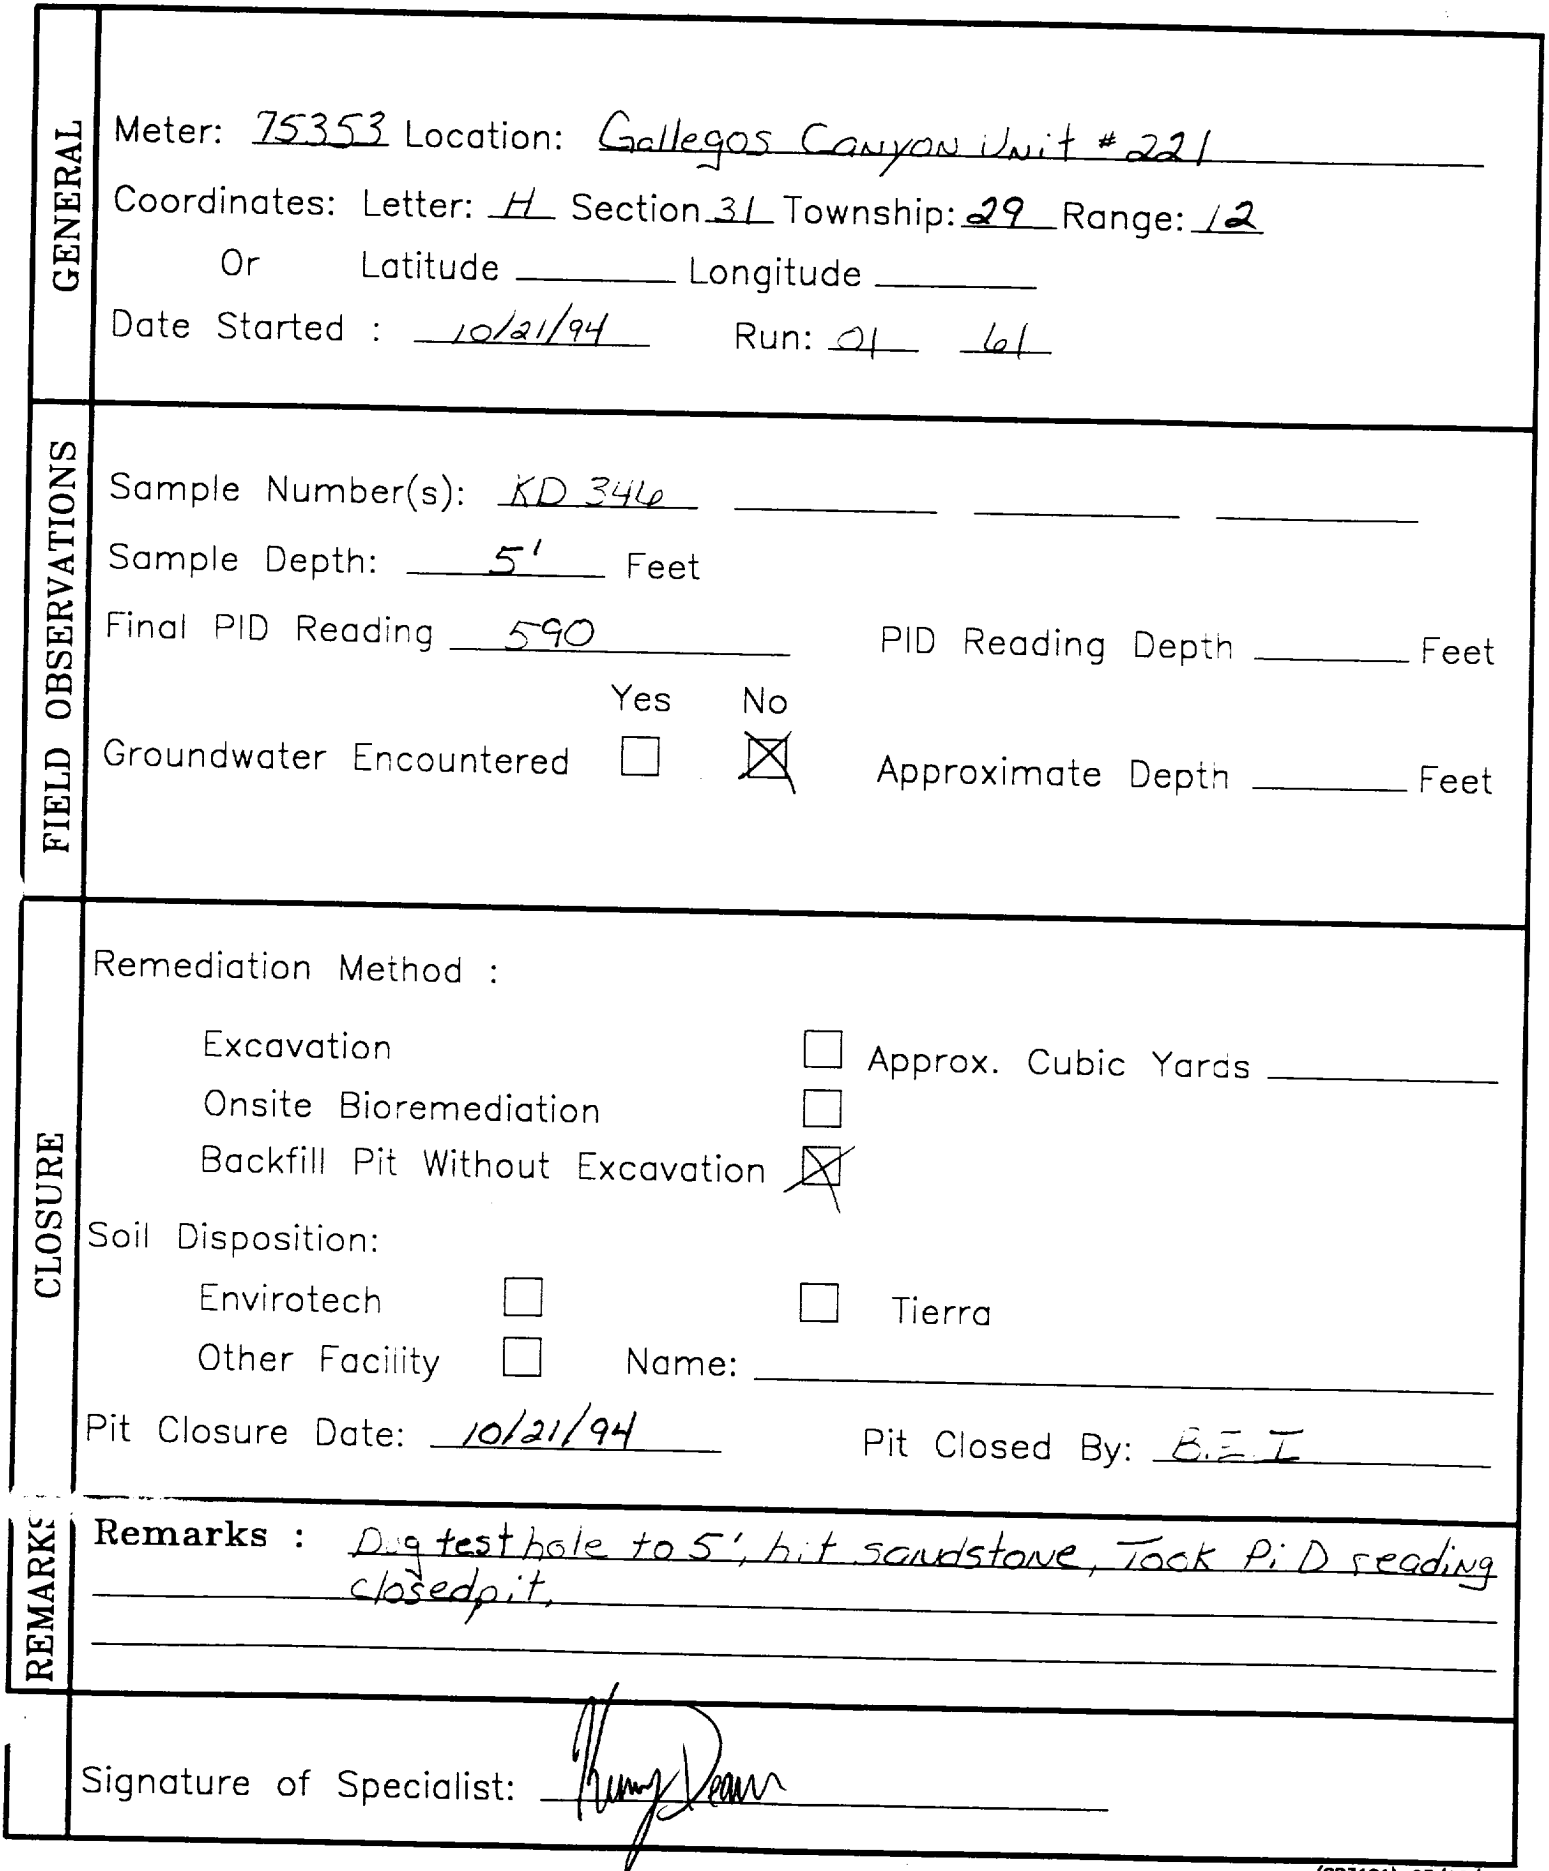 GENERAL
Meter: 75353 Location: Gallegos Canyon Unit # 221
Coordinates: Letter: H Section 31 Township: 29 Range: 12
Or Latitude Longitude
Date Started : 10/21/94 Run: 01 61
FIELD OBSERVATIONS
Sample Number(s): KD 346
Sample Depth: 5' Feet
Final PID Reading 590 PID Reading Depth Feet
Yes No
Groundwater Encountered Approximate Depth Feet
CLOSURE
Remediation Method :
Excavation Approx. Cubic Yards
Onsite Bioremediation
Backfill Pit Without Excavation
Soil Disposition:
Envirotech Tierra
Other Facility Name:
Pit Closure Date: 10/21/94 Pit Closed By: B.E.I
REMARKS
Remarks : Dug test hole to 5', hit sandstone, Took PiD reading
closed pit.
Signature of Specialist: Kenny Dean